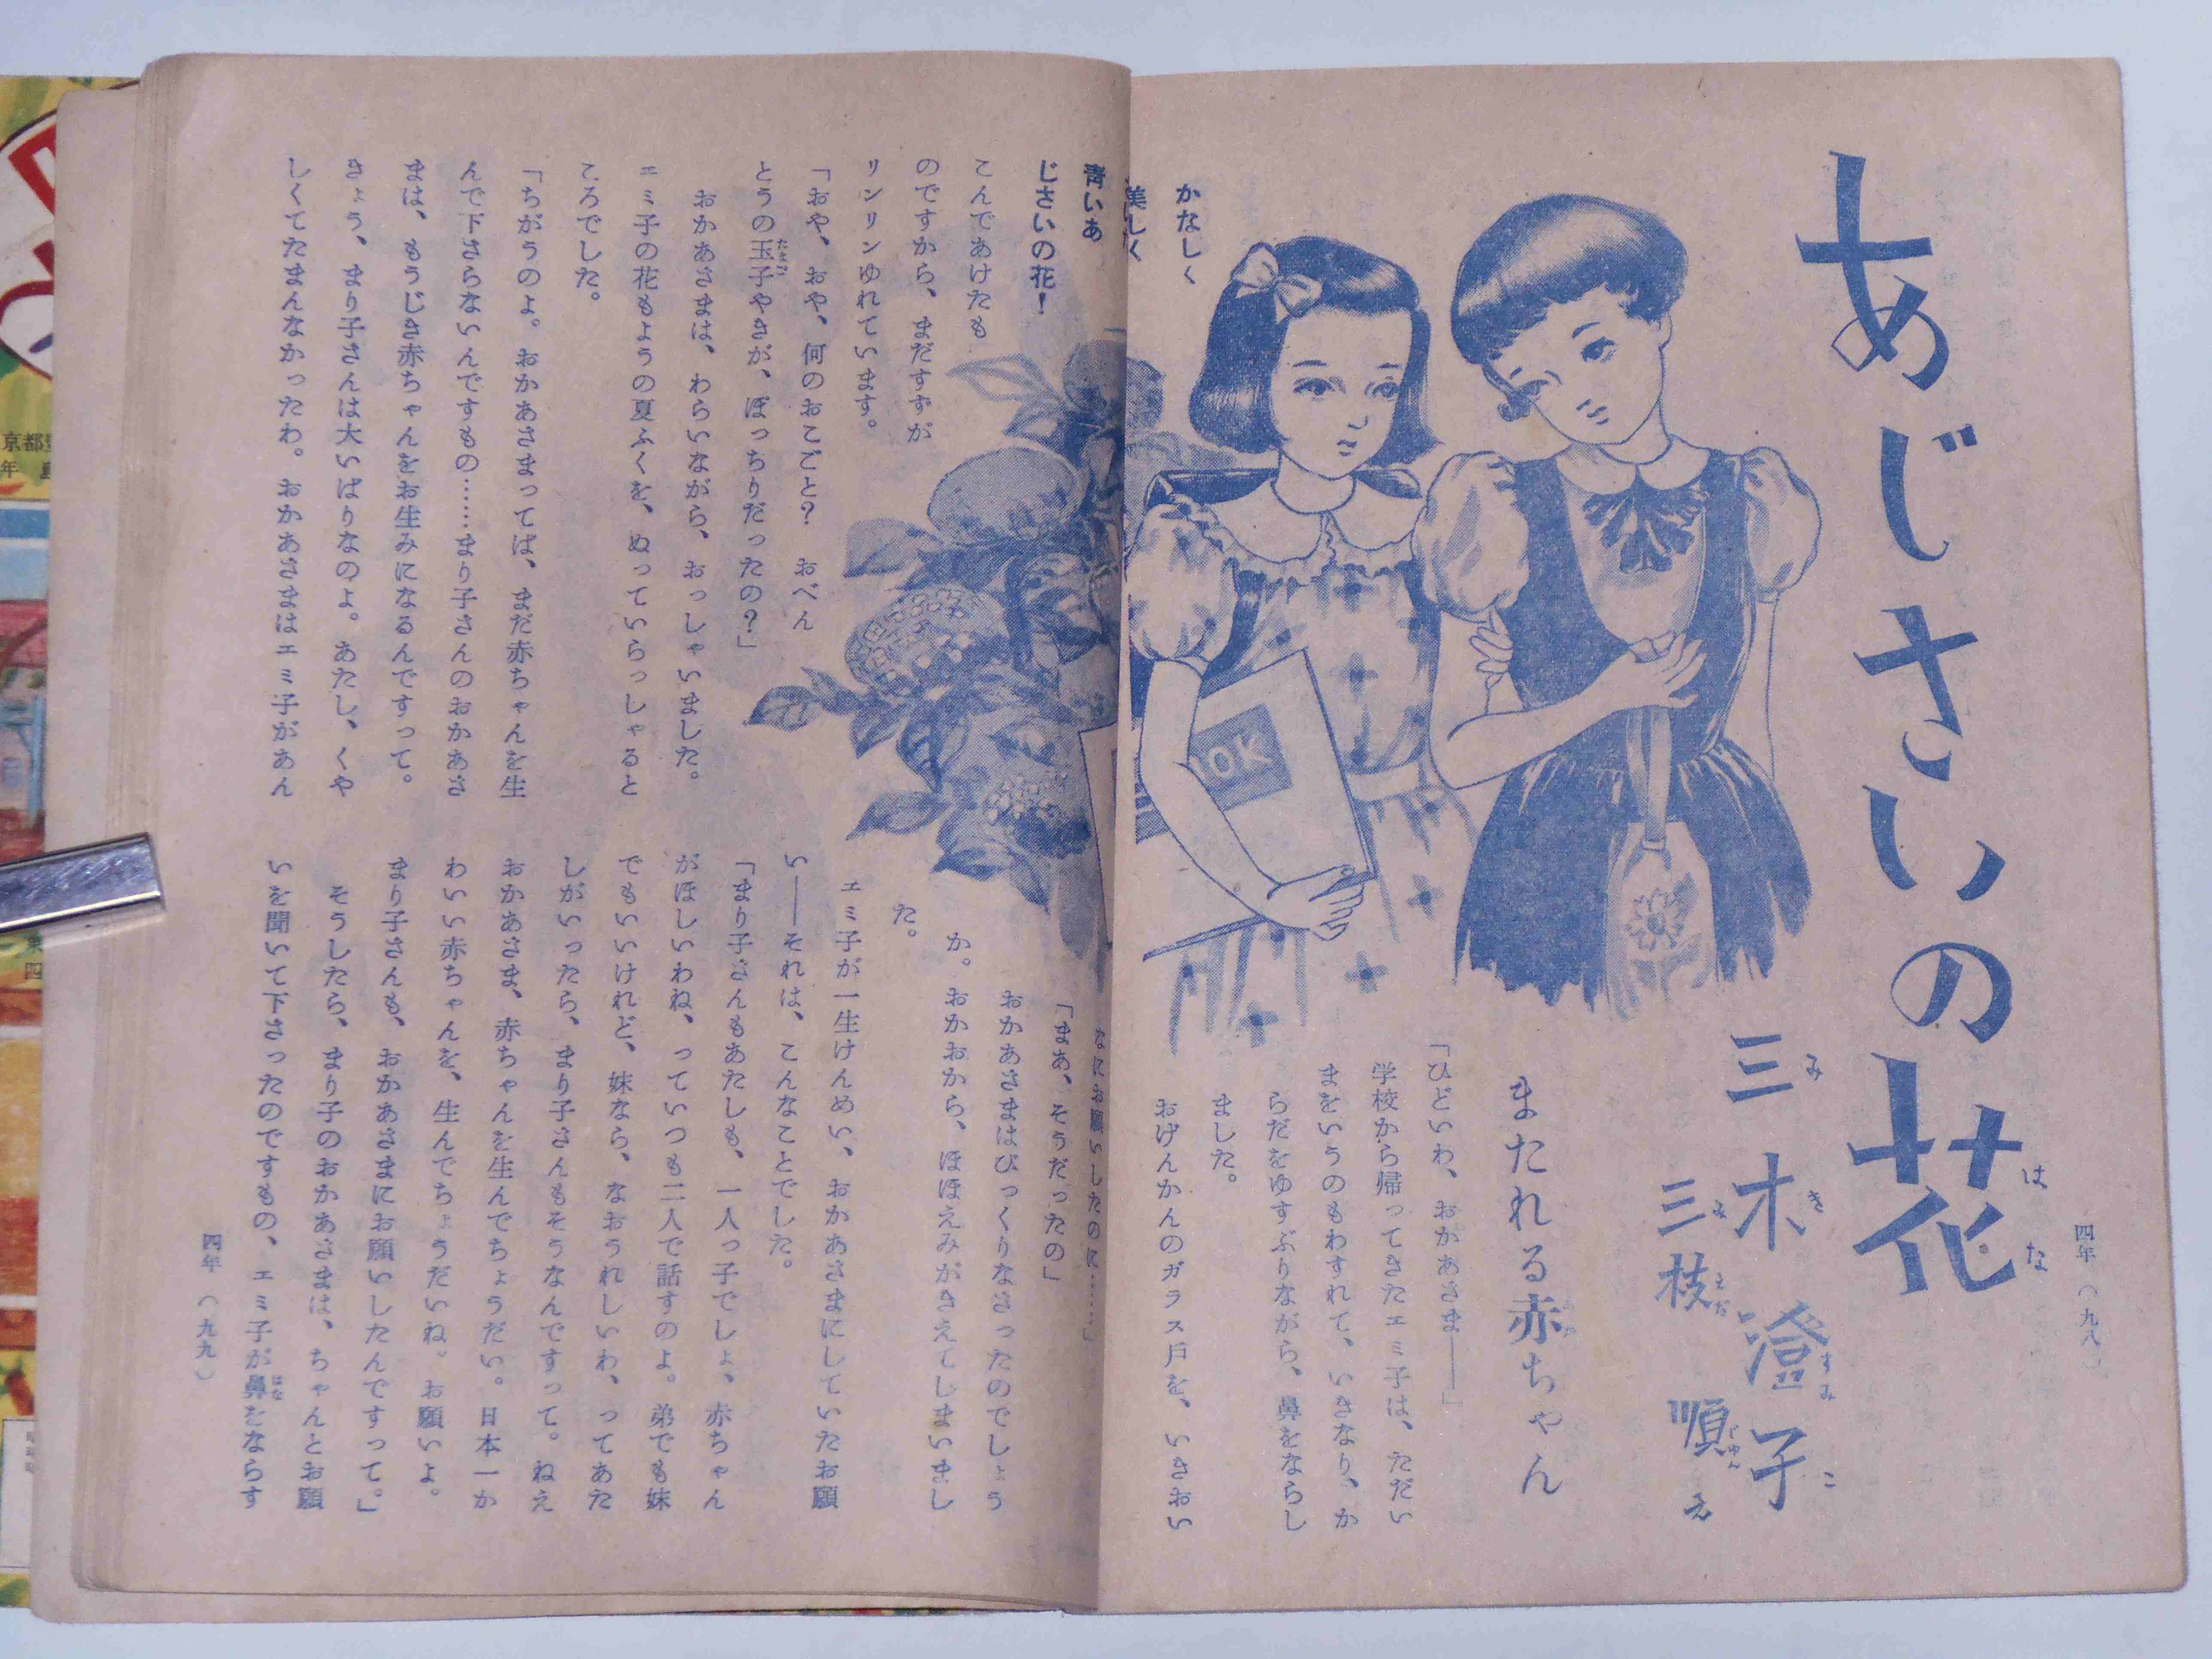 四年 (九八)
あじさいの花
はな
三木澄子
みきすみこ
三枝順え
みえだじゅん
かなしく
美しく
青いあ
じさいの花!
BOOK
またれる赤ちゃん
「ひどいわ、おかあさま――」
学校から帰ってきたエミ子は、ただい
まをいうのもわすれて、いきなり、か
らだをゆすぶりながら、鼻をならし
ました。
おげんかんのガラス戸を、いきおい
こんであけたも
のですから、まだすずが
リンリンゆれています。
「おや、おや、何のおこごと? おべん
とうの玉子やきが、ぽっちりだったの?」
たまご
おかあさまは、わらいながら、おっしゃいました。
エミ子の花もようの夏ふくを、ぬっていらっしゃると
ころでした。
「ちがうのよ。おかあさまってば、まだ赤ちゃんを生
んで下さらないんですもの……まり子さんのおかあさ
まは、もうじき赤ちゃんをお生みになるんですって。
きょう、まり子さんは大いばりなのよ。あたし、くや
しくてたまんなかったわ。おかあさまはエミ子があん
なにお願いしたのに……」
「まあ、そうだったの」
おかあさまはびっくりなさったのでしょう
か。おかおから、ほほえみがきえてしまいまし
た。
エミ子が一生けんめい、おかあさまにしていたお願
い――それは、こんなことでした。
「まり子さんもあたしも、一人っ子でしょ、赤ちゃん
がほしいわね、っていつも二人で話すのよ。弟でも妹
でもいいけれど、妹なら、なおうれしいわ、ってあた
しがいったら、まり子さんもそうなんですって。ねえ
おかあさま、赤ちゃんを生んでちょうだい。日本一か
わいい赤ちゃんを、生んでちょうだいね。お願いよ。
まり子さんも、おかあさまにお願いしたんですって。」
そうしたら、まり子のおかあさまは、ちゃんとお願
いを聞いて下さったのですもの、エミ子が鼻をならす
はな
四年 (九九)